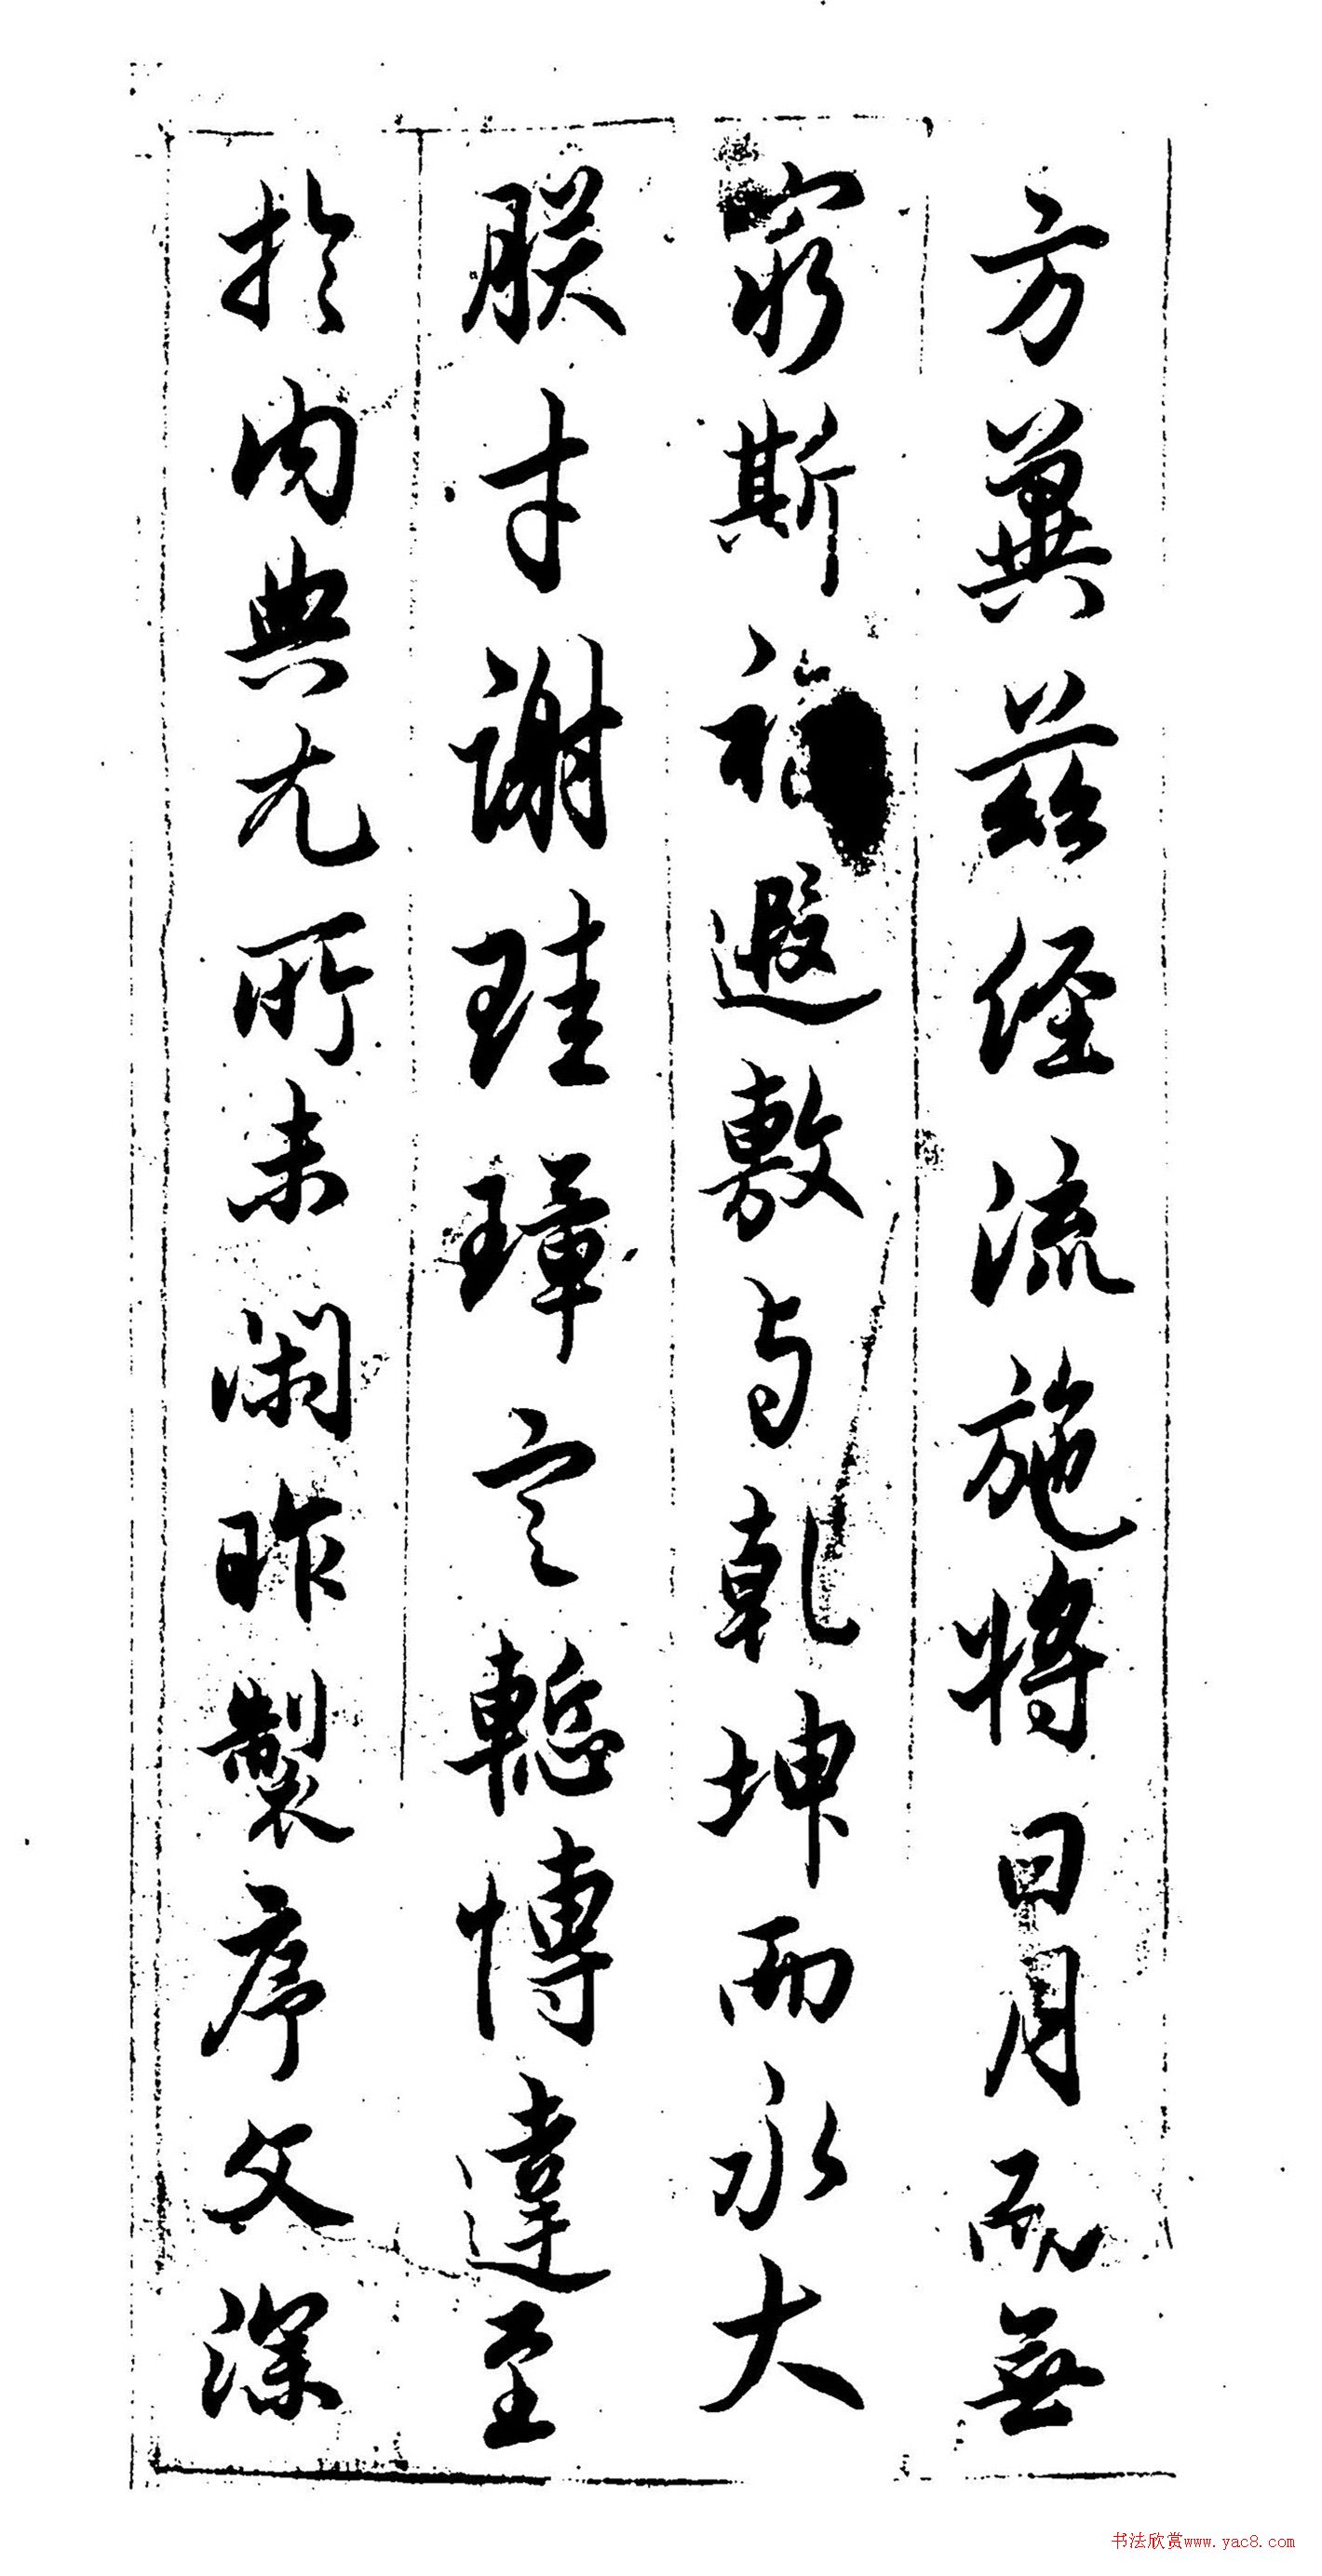 方冀茲經流施將日月而無
窮斯福遐敷與乾坤而永大
朕才謝珪璋言慙博達至
於內典尤所未閑昨製序文深
书法欣赏www.yac8.com